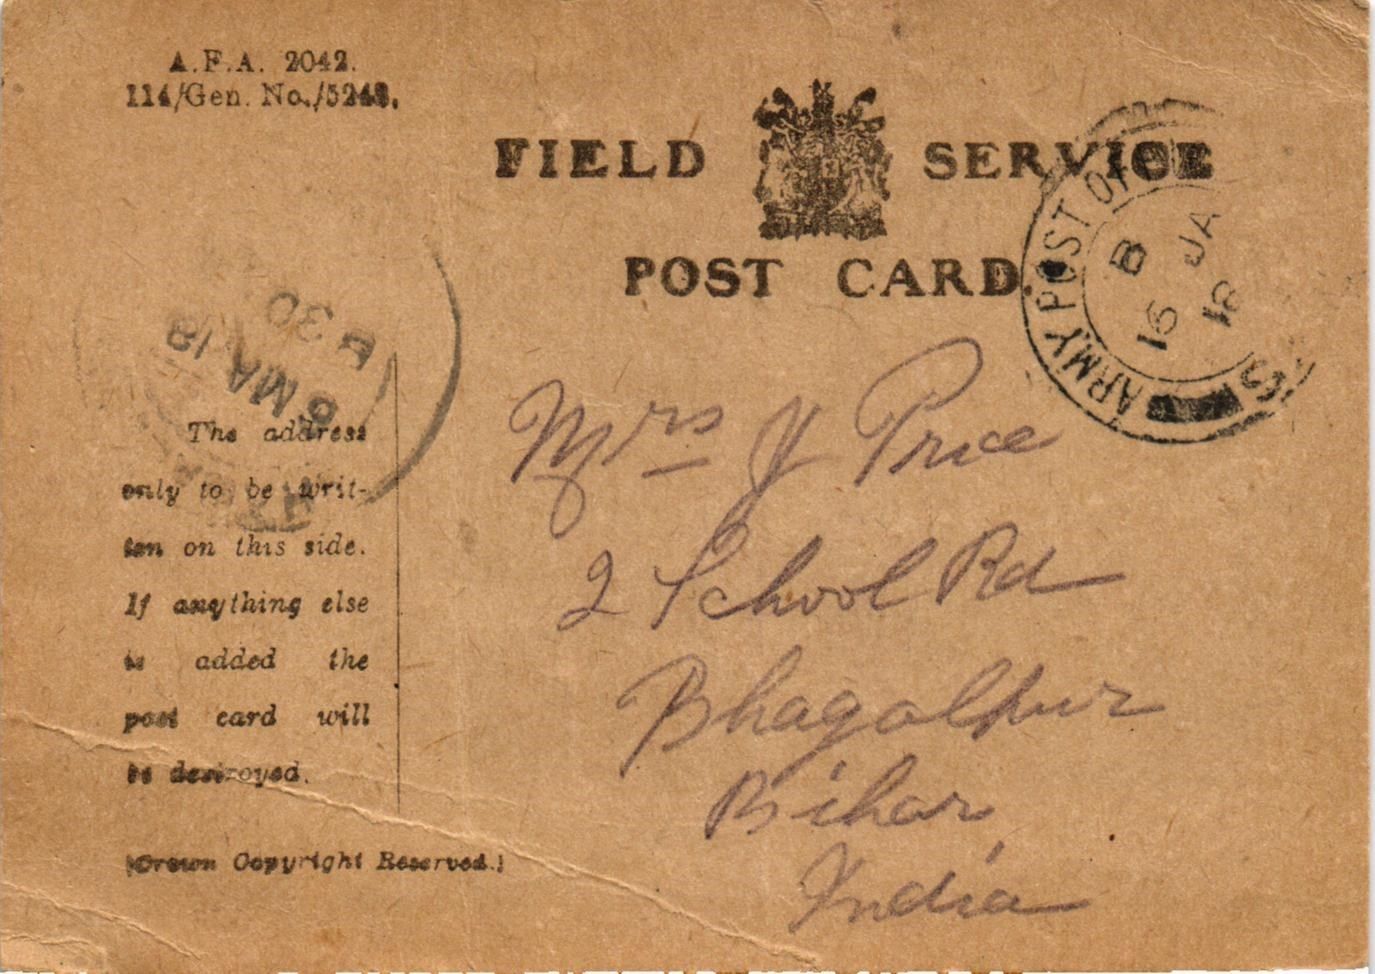 A.F.A. 2042.
114/Gen. No./5248.
FIELD SERVICE
POST CARD.
ARMY POST OFFICE
B
16 JA
18
5.30
6 MA 18
The address
only to be writ-
ten on this side.
If anything else
is added the
post card will
be destroyed.
(Crown Copyright Reserved.)
Mrs J Price
2 School Rd
Bhagalpur
Bihar
India